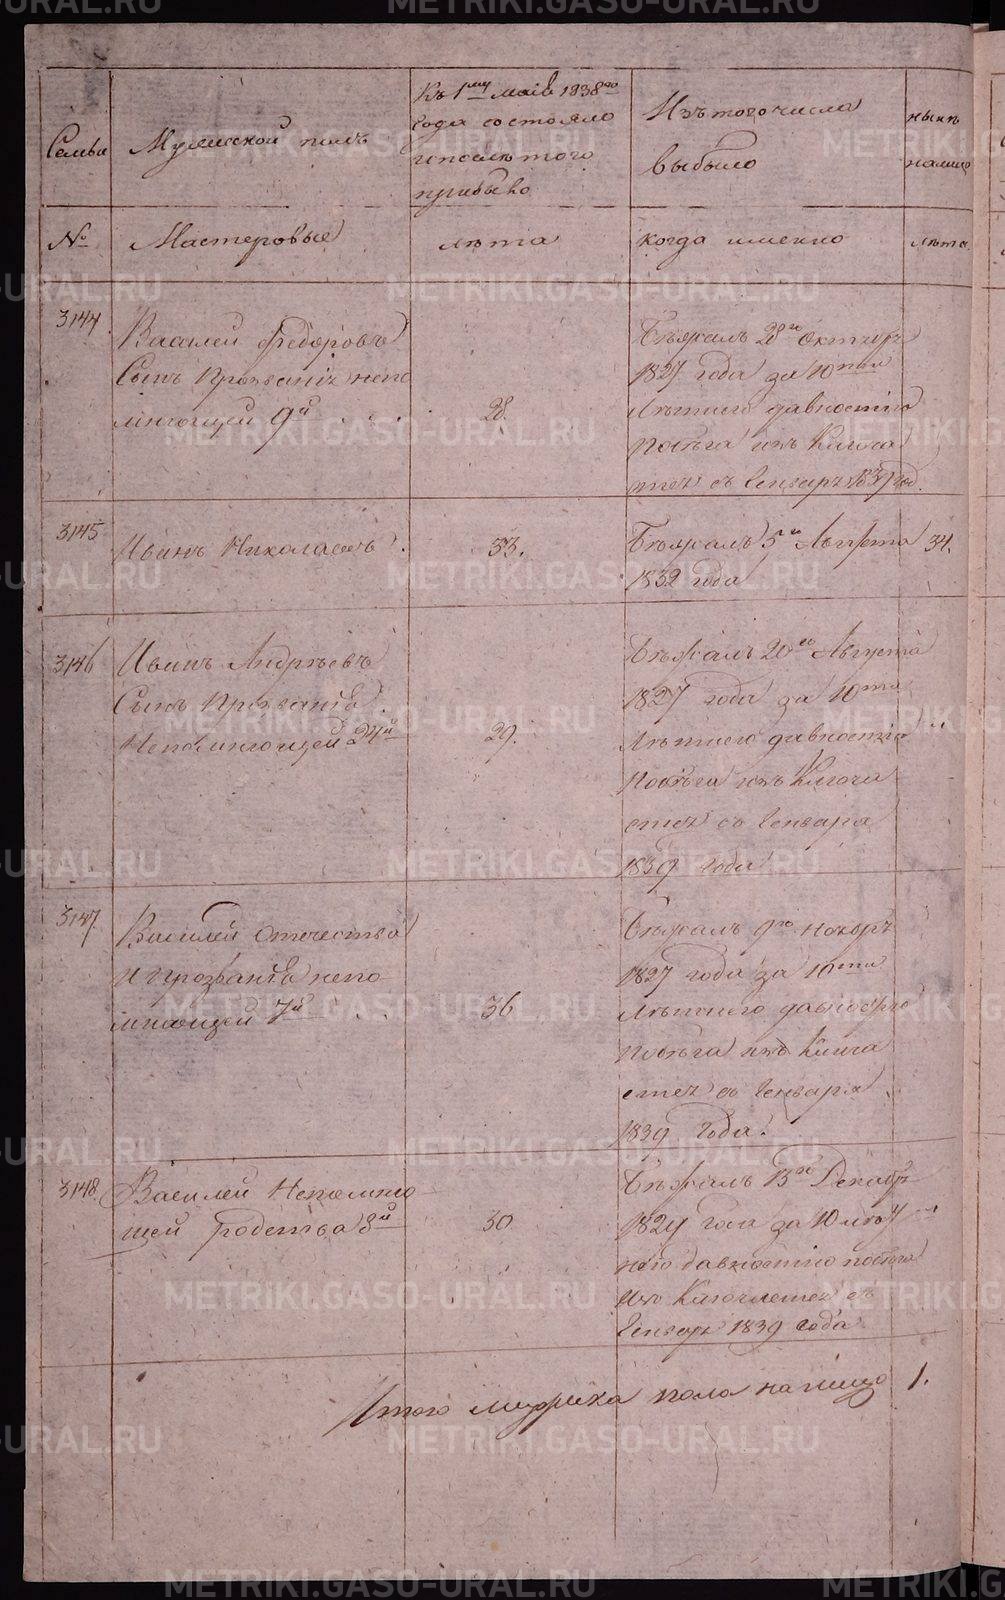 Семьи
Мужеской полъ
Къ 1му маія 1838го
года состояло
и после того
прибыло
Изъ того числа
выбыло
ныне
налицо
№
Мастеровые
лѣта
когда именно
лѣта
3144
Василей Федоровъ
Сынъ Прозванія непо
мнющей 9й
28.
Бѣжалъ 28го октября
1827 года за 10ти
лѣтнею давностію
побѣга изъ Ключа
с Генваря 1839 год.
3145
Иванъ Николаевъ
33.
Бѣжалъ 5го Августа
1832 года
34.
3146
Иванъ Андреевъ
Сынъ Прозванія
Непомнющей 24й
29.
Бѣжалъ 20го Августа
1827 года за 10ти
лѣтнею давностію
побѣга изъ Ключи
съ Генваря
1839 года
3147.
Василей Отечества
и прозванія непо
мнющей 7й
36
Бѣжалъ 9го ноября
1827 года за 10ти
лѣтнею давностію
побѣга изъ Ключа
съ Генваря
1839 года.
3148.
Василей Непомню
щей родства 8й
30
Бѣжалъ 13го Декабр
года за 10 лѣт
нею давностію побѣга
изъ съ
Генваря 1839 года
Итого мужеска пола налицо 1.
METRIKI.GASO-URAL.RU